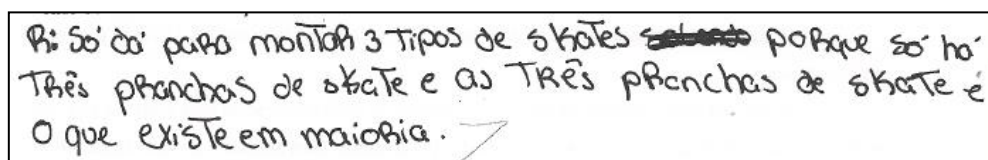 R: Só dá para montar 3 tipos de skates porque só há
três pranchas de skate e as três pranchas de skate é
o que existe em maioria.